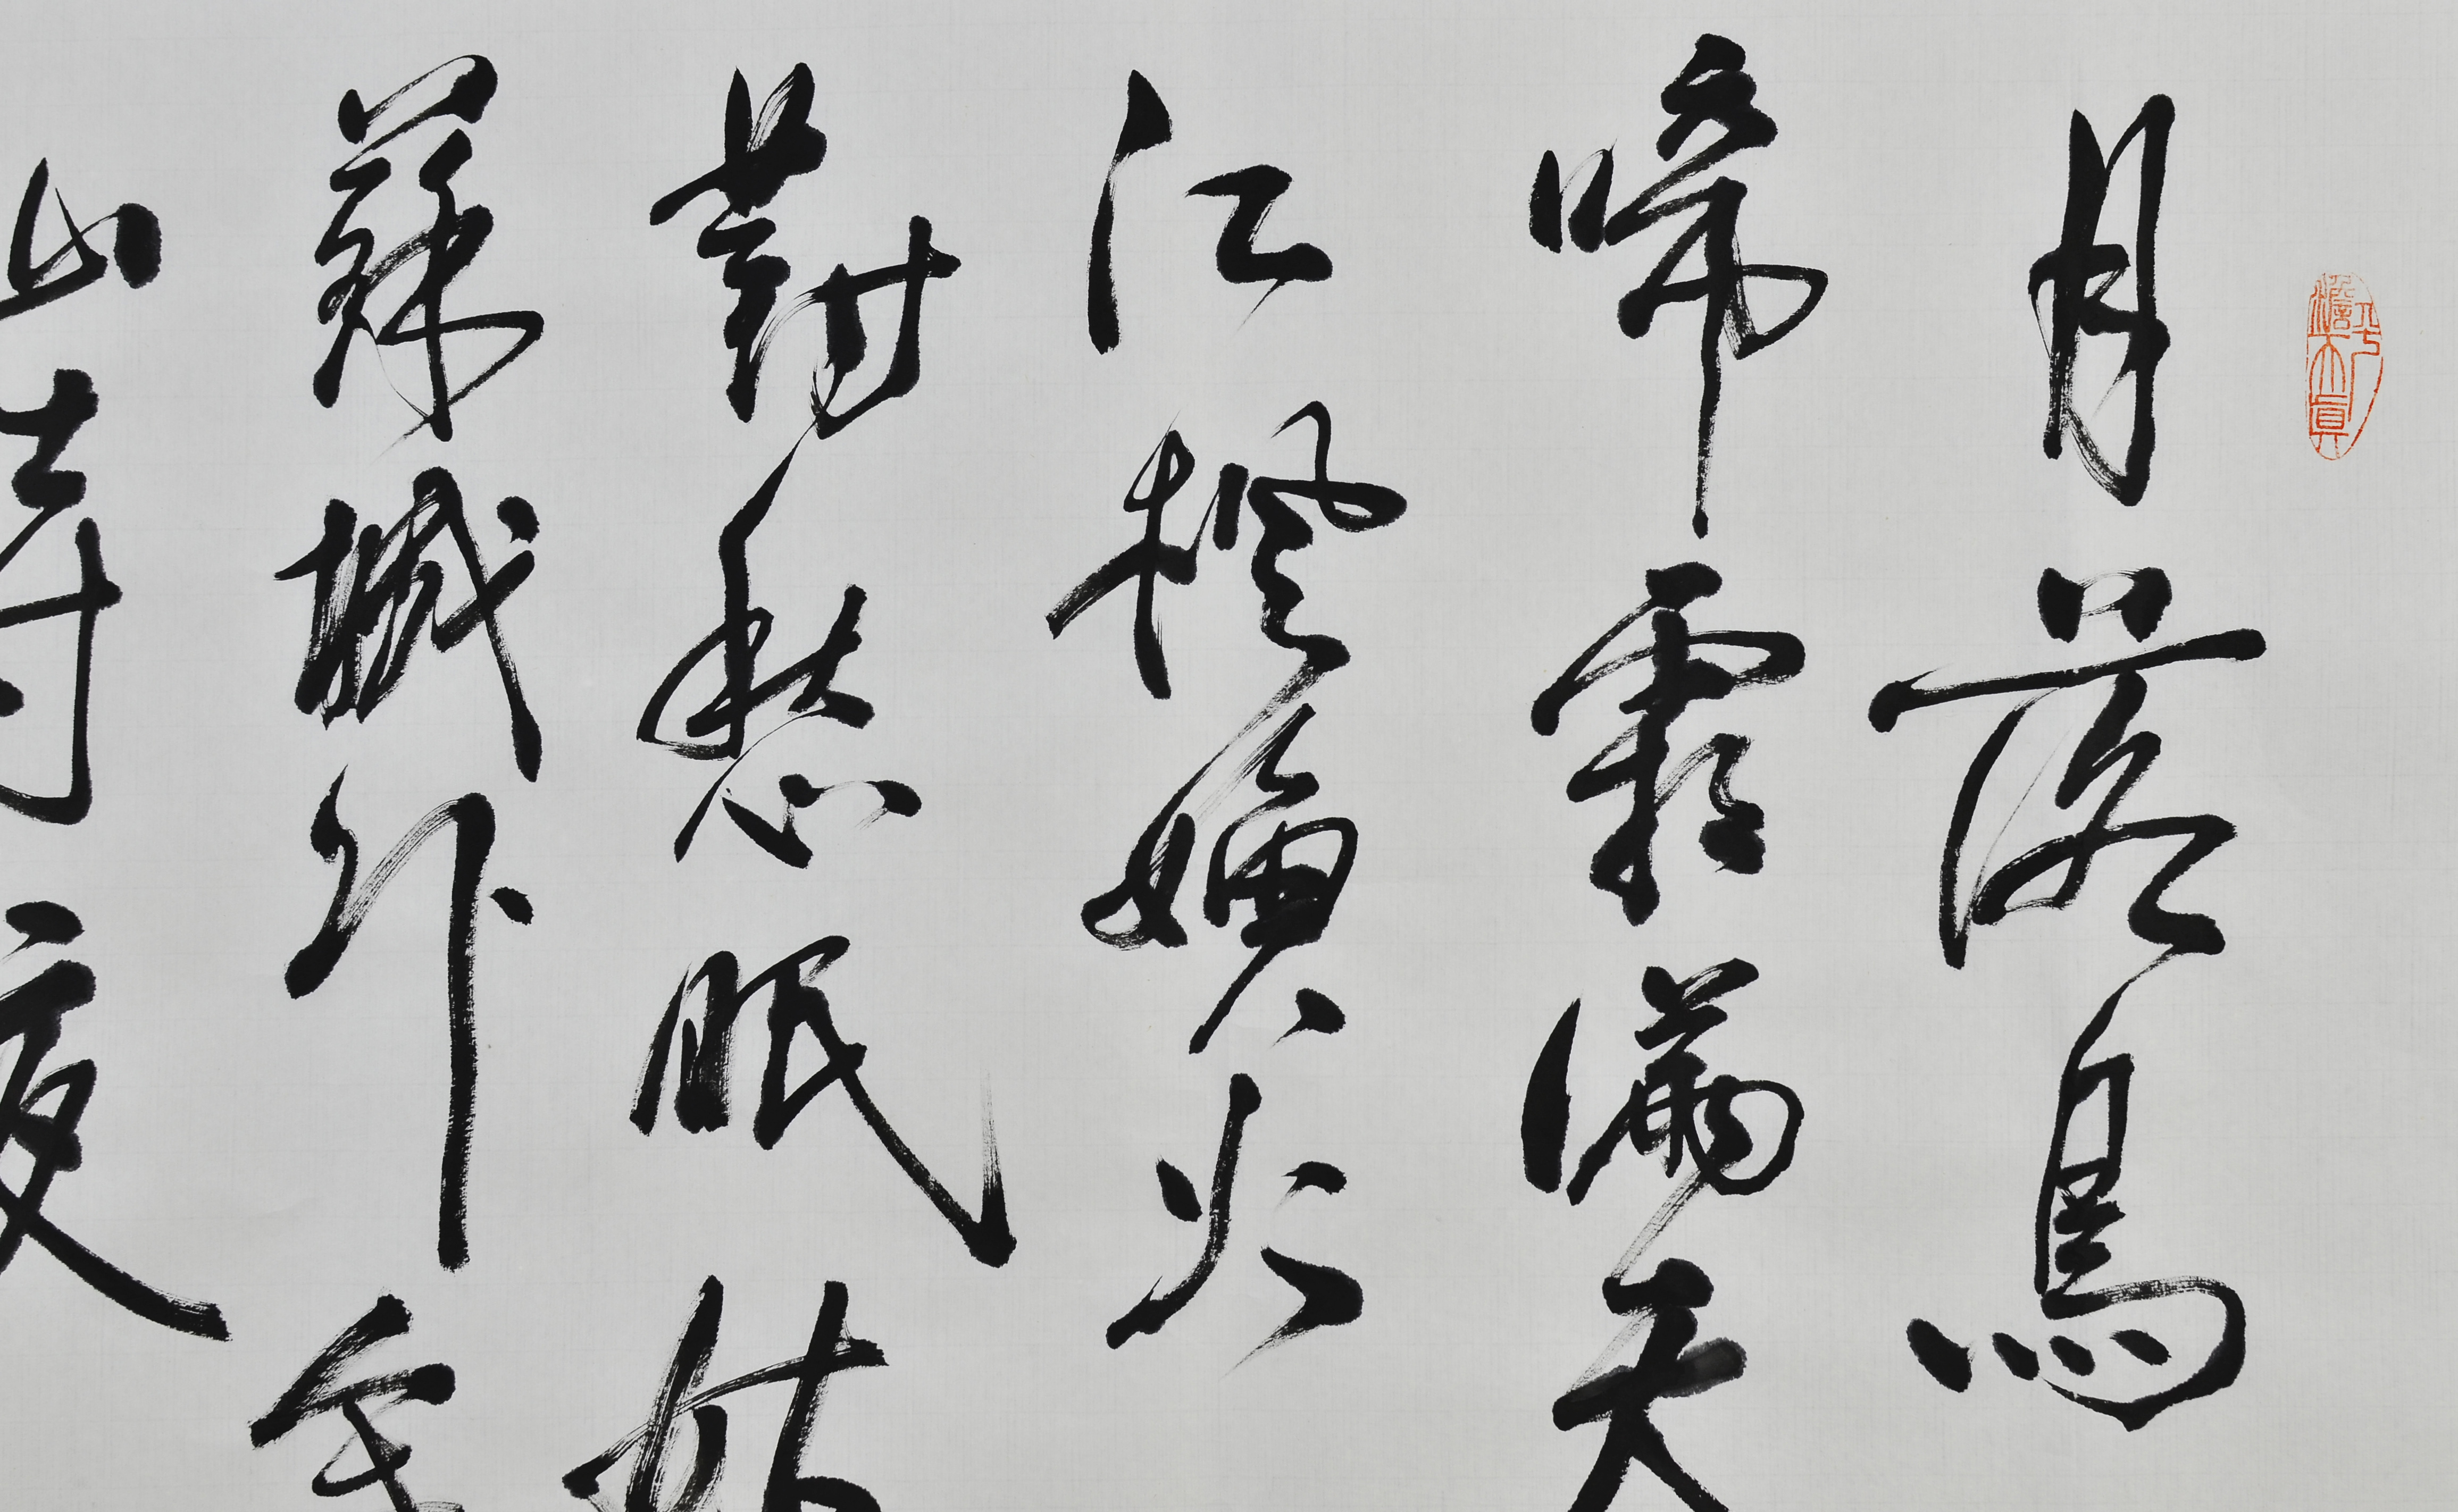 平澹天真
月落烏
啼霜滿天
江楓漁火
對愁眠姑
蘇城外寒
山寺夜